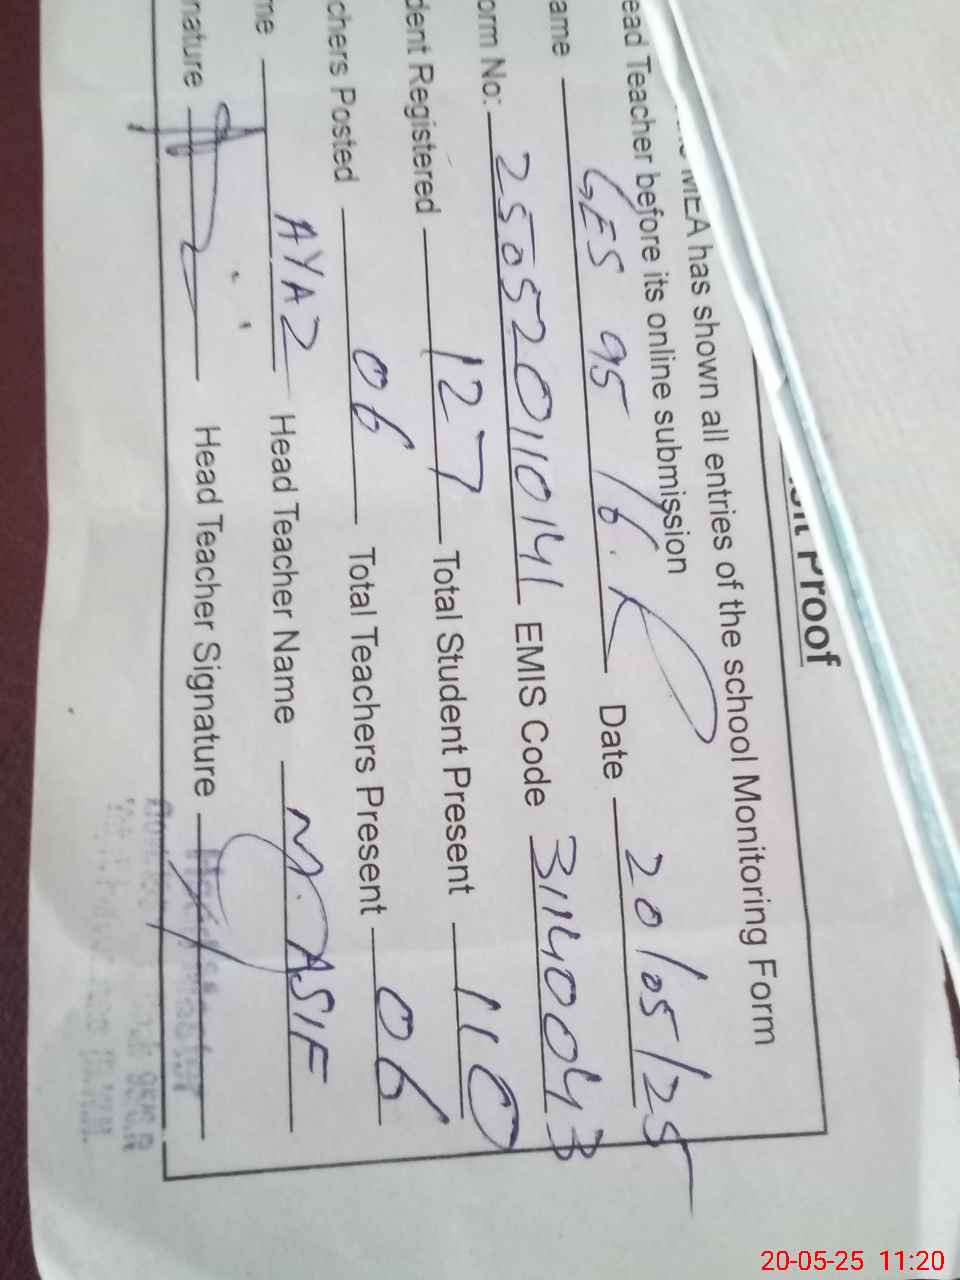 Proof
MEA has shown all entries of the school Monitoring Form
ead Teacher before its online submission
ame GES 95/6.R Date 20/05/25
orm No: 2505201110141 EMIS Code 31140043
dent Registered 127 Total Student Present 110
chers Posted 06 Total Teachers Present 06
me AYAZ Head Teacher Name M. ASIF
nature Head Teacher Signature
Headmaster
20-05-25 11:20